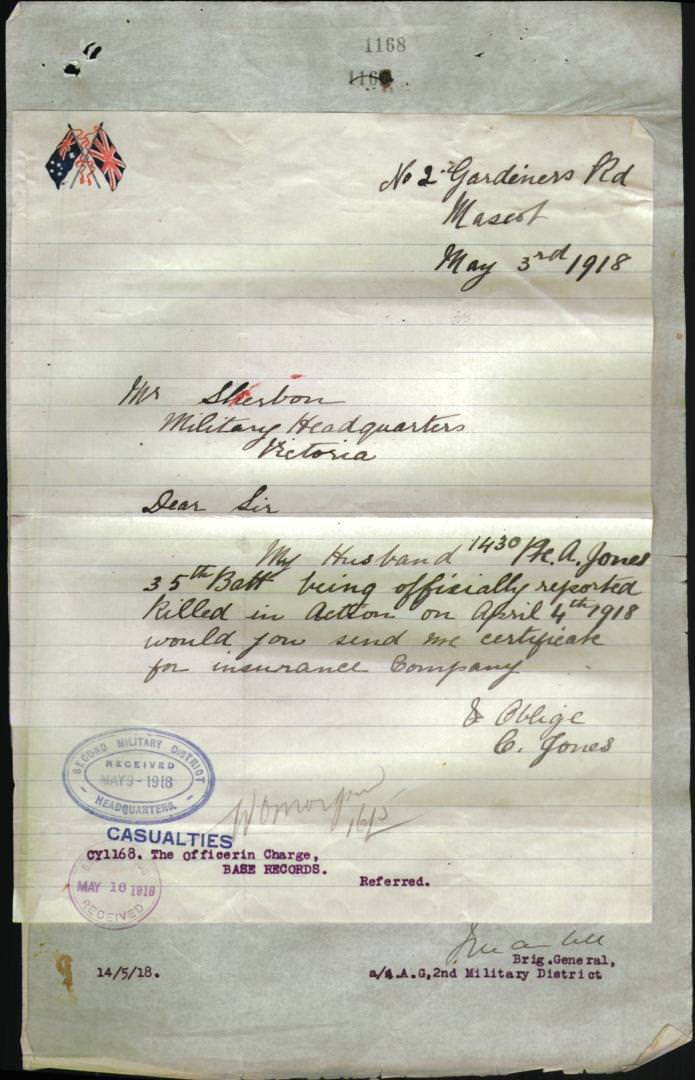 1168
1168
No 2 Gardiners Rd
Mascot
May 3rd 1918
Mr Sherbon
Military Headquarters
Victoria
Dear Sir
My Husband 1430 Pte. A. Jones
35th Batt being officially reported
Killed in Action on April 4th 1918
would you send me certificate
for insurance Company
& Oblige
C. Jones
SECOND MILITARY DISTRICT
RECEIVED
MAY 9 - 1918
HEADQUARTERS.
CASUALTIES
16/5
CY1168. The Officerin Charge,
BASE RECORDS.
Referred.
MAY 16 1918
RECEIVED
Brig.General,
14/5/18. a/A.A.G,2nd Military District